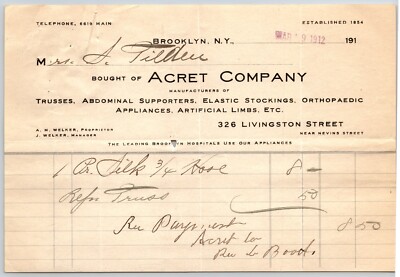 TELEPHONE, 6616 MAIN
ESTABLISHED 1854
BROOKLYN, N.Y., MAR 19 1912 191
Mrs. S. Tilden
BOUGHT OF ACRET COMPANY
MANUFACTURERS OF
TRUSSES, ABDOMINAL SUPPORTERS, ELASTIC STOCKINGS, ORTHOPAEDIC
APPLIANCES, ARTIFICIAL LIMBS, ETC.
A. M. WELKER, PROPRIETOR
J. WELKER, MANAGER
326 LIVINGSTON STREET
NEAR NEVINS STREET
THE LEADING BROOKLYN HOSPITALS USE OUR APPLIANCES
1 Pr. Silk 3/4 Hose 8 –
Repr Truss 50
Rec Payment 8 50
Acret Co